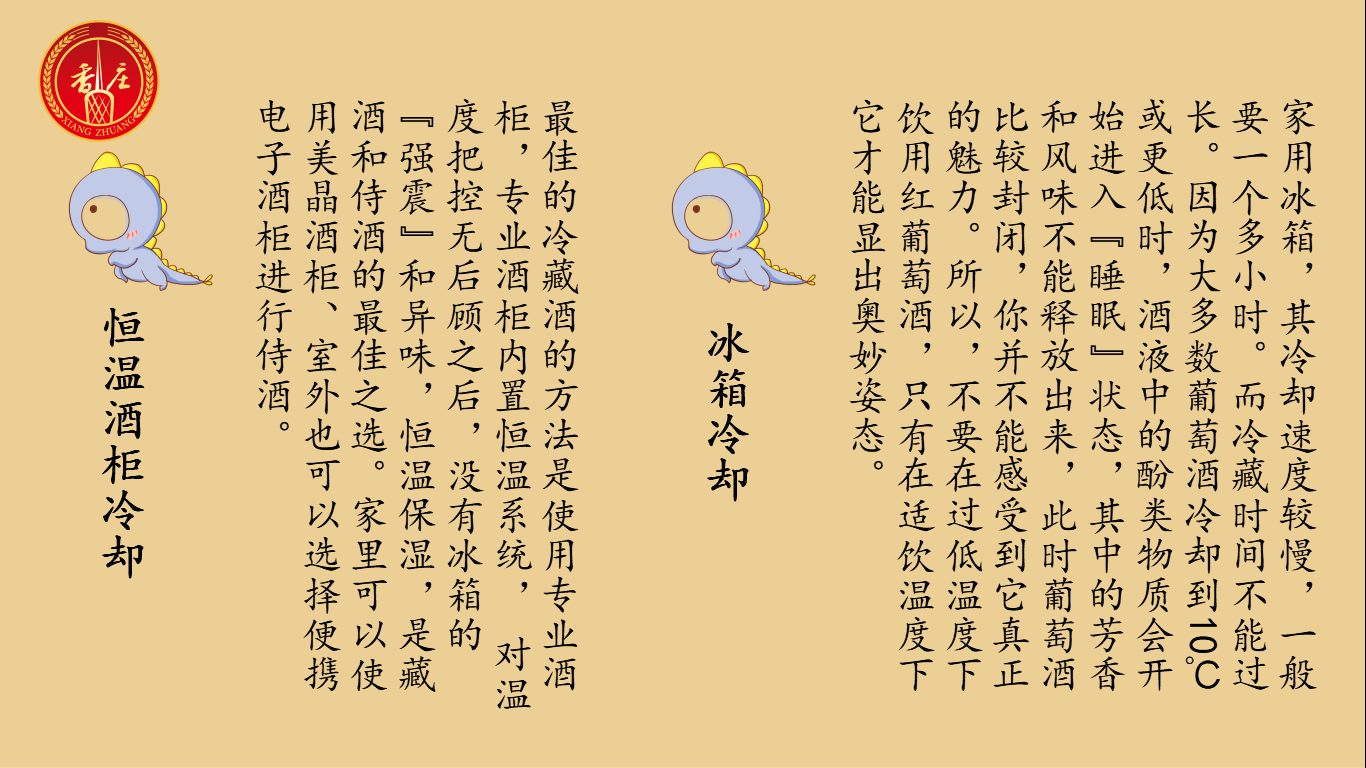 家用冰箱，其冷却速度较慢，一般
要一个多小时。而冷藏时间不能过
长。因为大多数葡萄酒冷却到10℃
或更低时，酒液中的酚类物质会开
始进入『睡眠』状态，其中的芳香
和风味不能释放出来，此时葡萄酒
比较封闭，你并不能感受到它真正
的魅力。所以，不要在过低温度下
饮用红葡萄酒，只有在适饮温度下
它才能显出奥妙姿态。
冰箱冷却
最佳的冷藏酒的方法是使用专业酒
柜，专业酒柜内置恒温系统，对温
度把控无后顾之后，没有冰箱的
『强震』和异味，恒温保湿，是藏
酒和侍酒的最佳之选。家里可以使
用美晶酒柜、室外也可以选择便携
电子酒柜进行侍酒。
恒温酒柜冷却
香庄
XIANG ZHUANG